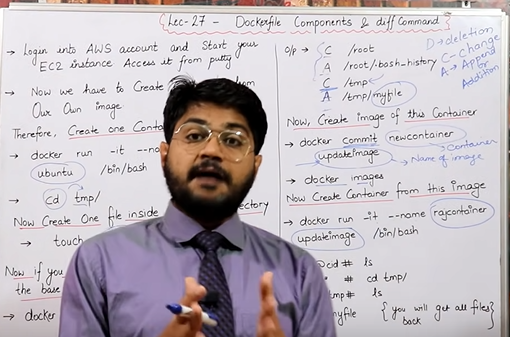 Lec-27 - Dockerfile Components & diff Command
→ Login into AWS account and Start your
EC2 instance Access it from putty
→ Now we have to Create
Our Own image
Therefore, Create one Conta
→ docker run -it --n
ubuntu /bin/bash
→ cd tmp/
Now Create One file inside
→ touch
Now if you
the base
→ docker
O/p → C /root
A /root/.bash-history
C /tmp
A /tmp/myfile
D → deletion
C - Change
A → Append
or
Addition
Now, Create image of this Container
→ docker commit newcontainer
updateimage
Container
Name of image
→ docker images
Now Create Container from this image
→ docker run -it --name rajcontainer
updateimage /bin/bash
@cid # ls
# cd tmp/
tmp# ls
myfile { you will get all files }
back